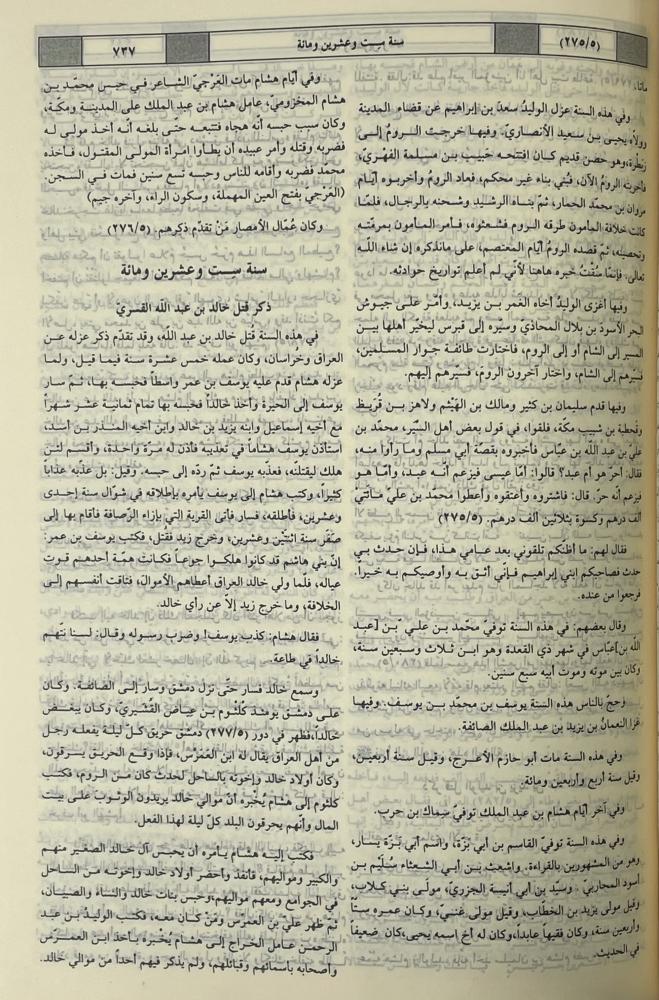 (٢٧٥/٥)
سنة سِت وعشرين ومائة
٧٣٧
ماتا.
وفي هذه السنة عزل الوليدُ سعدَ بن إبراهيم عن قضاء المدينة
وولاّه يحيى بن سعيد الأنصاريّ. وفيها خرجت الرومُ إلى
زبطرة، وهو حصن قديم كان افتتحه حَبيب بن مسلمة الفِهْريّ،
فأخربته الرومُ الآن، فبُني بناء غير محكم، فعاد الرومُ وأخربوه أيّام
مروان بن محمّد الحمار، ثمّ بناه الرشيد وشحنه بالرجال، فلمّا
كانت خلافة المأمون طرقه الروم فشعثوه، فأمر المأمون بمرمّته
وتحصينه، ثمّ قصده الرومُ أيّام المعتصم، على ما نذكره إن شاء اللّه
تعالى. فإنّما سُقْتُ خبره هاهنا لأنّي لم أعلم تواريخ حوادثه.
وفيها أغزى الوليدُ أخاه الغَمْر بن يزيد، وأمّر على جيوش
البحر الأسود بن بلال المحاذيّ وسيّره إلى قبرس ليخيّر أهلها بين
المسير إلى الشام أو إلى الروم، فاختارت طائفة جوار المسلمين،
فسيّرهم إلى الشام، واختار آخرون الروم، فسيّرهم إليهم.
وفيها قدم سليمان بن كثير ومالك بن الهَيْثم ولاهز بن قُرَيظ
وقحطبة بن شبيب مكّة، فلقوا، في قول بعض أهل السِّيَر، محمّد بن
عليّ بن عبد اللّه بن عبّاس فأخبروه بقصّة أبي مسلم وما رأوا منه،
فقال: أحرّ هو أم عبد؟ قالوا: أمّا عيسى فيزعم أنّه عبد، وأمّا هو
فيزعم أنّه حرّ. قال: فاشتروه وأعتقوه وأعطوا محمّد بن عليّ مائتي
ألف درهم وكسوة بثلاثين ألف درهم. (٢٧٥/٥)
فقال لهم: ما أظنّكم تلقوني بعد عامي هذا، فإن حدث بي
حدث فصاحبكم ابني إبراهيم فإنّي أثق به وأوصيكم به خيراً.
فرجعوا من عنده.
وقال بعضهم: في هذه السنة توفيّ محمّد بن علي بن [عبد
اللّه بن]عبّاس في شهر ذي القعدة وهو ابن ثلاث وسبعين سنة،
وكان بين موته وموت أبيه سبع سنين.
وحجّ بالناس هذه السنة يوسف بن محمّد بن يوسف. وفيها
غزا النعمانُ بن يزيد بن عبد الملك الصائفة.
وفي هذه السنة مات أبو حازم الأعرج، وقيل سنة أربعين،
وقيل سنة أربع وأربعين ومائة.
وفي آخر أيّام هشام بن عبد الملك توفيّ سِماك بن حرب.
وفي هذه السنة توفيّ القاسم بن أبي بَزّة، واسم أبي بَزّة يسار،
وهو من المشهورين بالقراءة. وأشعث بن أبي الشعثاء سُلَيْم بن
أسود المحاربيّ. وسيّد بن أبي أنيسة الجزريّ، مولى بني كلاب،
وقيل مولى يزيد بن الخطّاب، وقيل مولى غنيّ، وكان عمره ستّاً
وأربعين سنة، وكان فقيهاً عابداً، وكان له أخ اسمه يحيى، كان ضعيفاً
في الحديث.
وفي أيّام هشام مات العَرْجيّ الشاعر في حبس محمّد بن
هشام المخزوميّ، عامل هشام بن عبد الملك على المدينة ومكّة،
وكان سبب حبسه أنّه هجاه فتتبعه حتّى بلغه أنّه أخذ مولى له
فضربه وقتله وأمر عبيده أن يطأوا امرأة المولى المقتول، فأخذه
محمّد فضربه وأقامه للناس وحبسه تسع سنين فمات في السجن.
(العَرْجيّ بفتح العين المهملة، وسكون الراء، وآخره جيم)
وكان عُمّال الأمصار مَنْ تقدّم ذكرهم. (٢٧٦/٥)
سنة سِت وعشرين ومائة
ذكر قتل خالد بن عبد اللّه القسريّ
في هذه السنة قُتل خالد بن عبد اللّه، وقد تقدّم ذكر عزله عن
العراق وخراسان، وكان عمله خمس عشرة سنة فيما قيل، ولما
عزله هشام قدم عليه يوسف بن عمر واسطاً فحبسه بها، ثمّ سار
يوسف إلى الحيرة وأخذ خالداً فحبسه بها تمام ثمانية عشر شهراً
مع أخيه إسماعيل وابنه يزيد بن خالد وابن أخيه المنذر بن أسد،
استأذن يوسف هشاماً في تعذيبه فأذن له مرّة واحدة، وأقسم لئن
هلك ليقتلنّه، فعذبه يوسف ثمّ ردّه إلى حبسه. وقيل: بل عذّبه عذاباً
كثيراً، وكتب هشام إلى يوسف يأمره بإطلاقه في شوّال سنة إحدى
وعشرين، فأطلقه، فسار فأتى القرية التي بإزاء الرُّصافة فأقام بها إلى
صَفَر سنة اثنتين وعشرين، وخرج زيد فقُتل، فكتب يوسف بن عمر:
إنّ بني هاشم قد كانوا هلكوا جوعاً فكانت همّة أحدهم قوت
عياله، فلمّا ولي خالد العراق أعطاهم الأموال، فتاقت أنفسهم إلى
الخلافة، وما خرج زيد إلاّ عن رأي خالد.
فقال هشام: كذب يوسف! وضرب رسوله وقال: لسنا نتّهم
خالداً في طاعة.
وسمع خالد فسار حتّى نزل دمشق وسار إلى الصائفة. وكان
على دمشق يومئذ كُلْثوم بن عِياض القُشَيريّ، وكان يبغض
خالداً، فظهر في دور (٢٧٧/٥) دمشق حريق كلّ ليلة يفعله رجل
من أهل العراق يقال له ابن العَمَرَّس، فإذا وقع الحريق يسرقون،
وكان أولاد خالد وإخوته بالساحل لحدث كان من الروم، فكتب
كلثوم إلى هشام يُخْبره أنّ موالي خالد يريدون الوثوب على بيت
المال وأنّهم يحرقون البلد كلّ ليلة لهذا الفعل.
فكتب إليه هشام يأمره أن يحبس آل خالد الصغير منهم
والكبير ومواليهم، فأنفذ وأحضر أولاد خالد وإخوته من الساحل
في الجوامع ومعهم مواليهم، وحبس بنات خالد والنساء والصبيان،
ثمّ ظهر عليّ بن العمرّس ومَنْ كان معه، فكتب الوليدُ بن عبد
الرحمن عامل الخراج إلى هشام يُخْبره بأخذ ابن العمرّس
وأصحابه بأسمائهم وقبائلهم، ولم يذكر فيهم أحداً من موالي خالد.